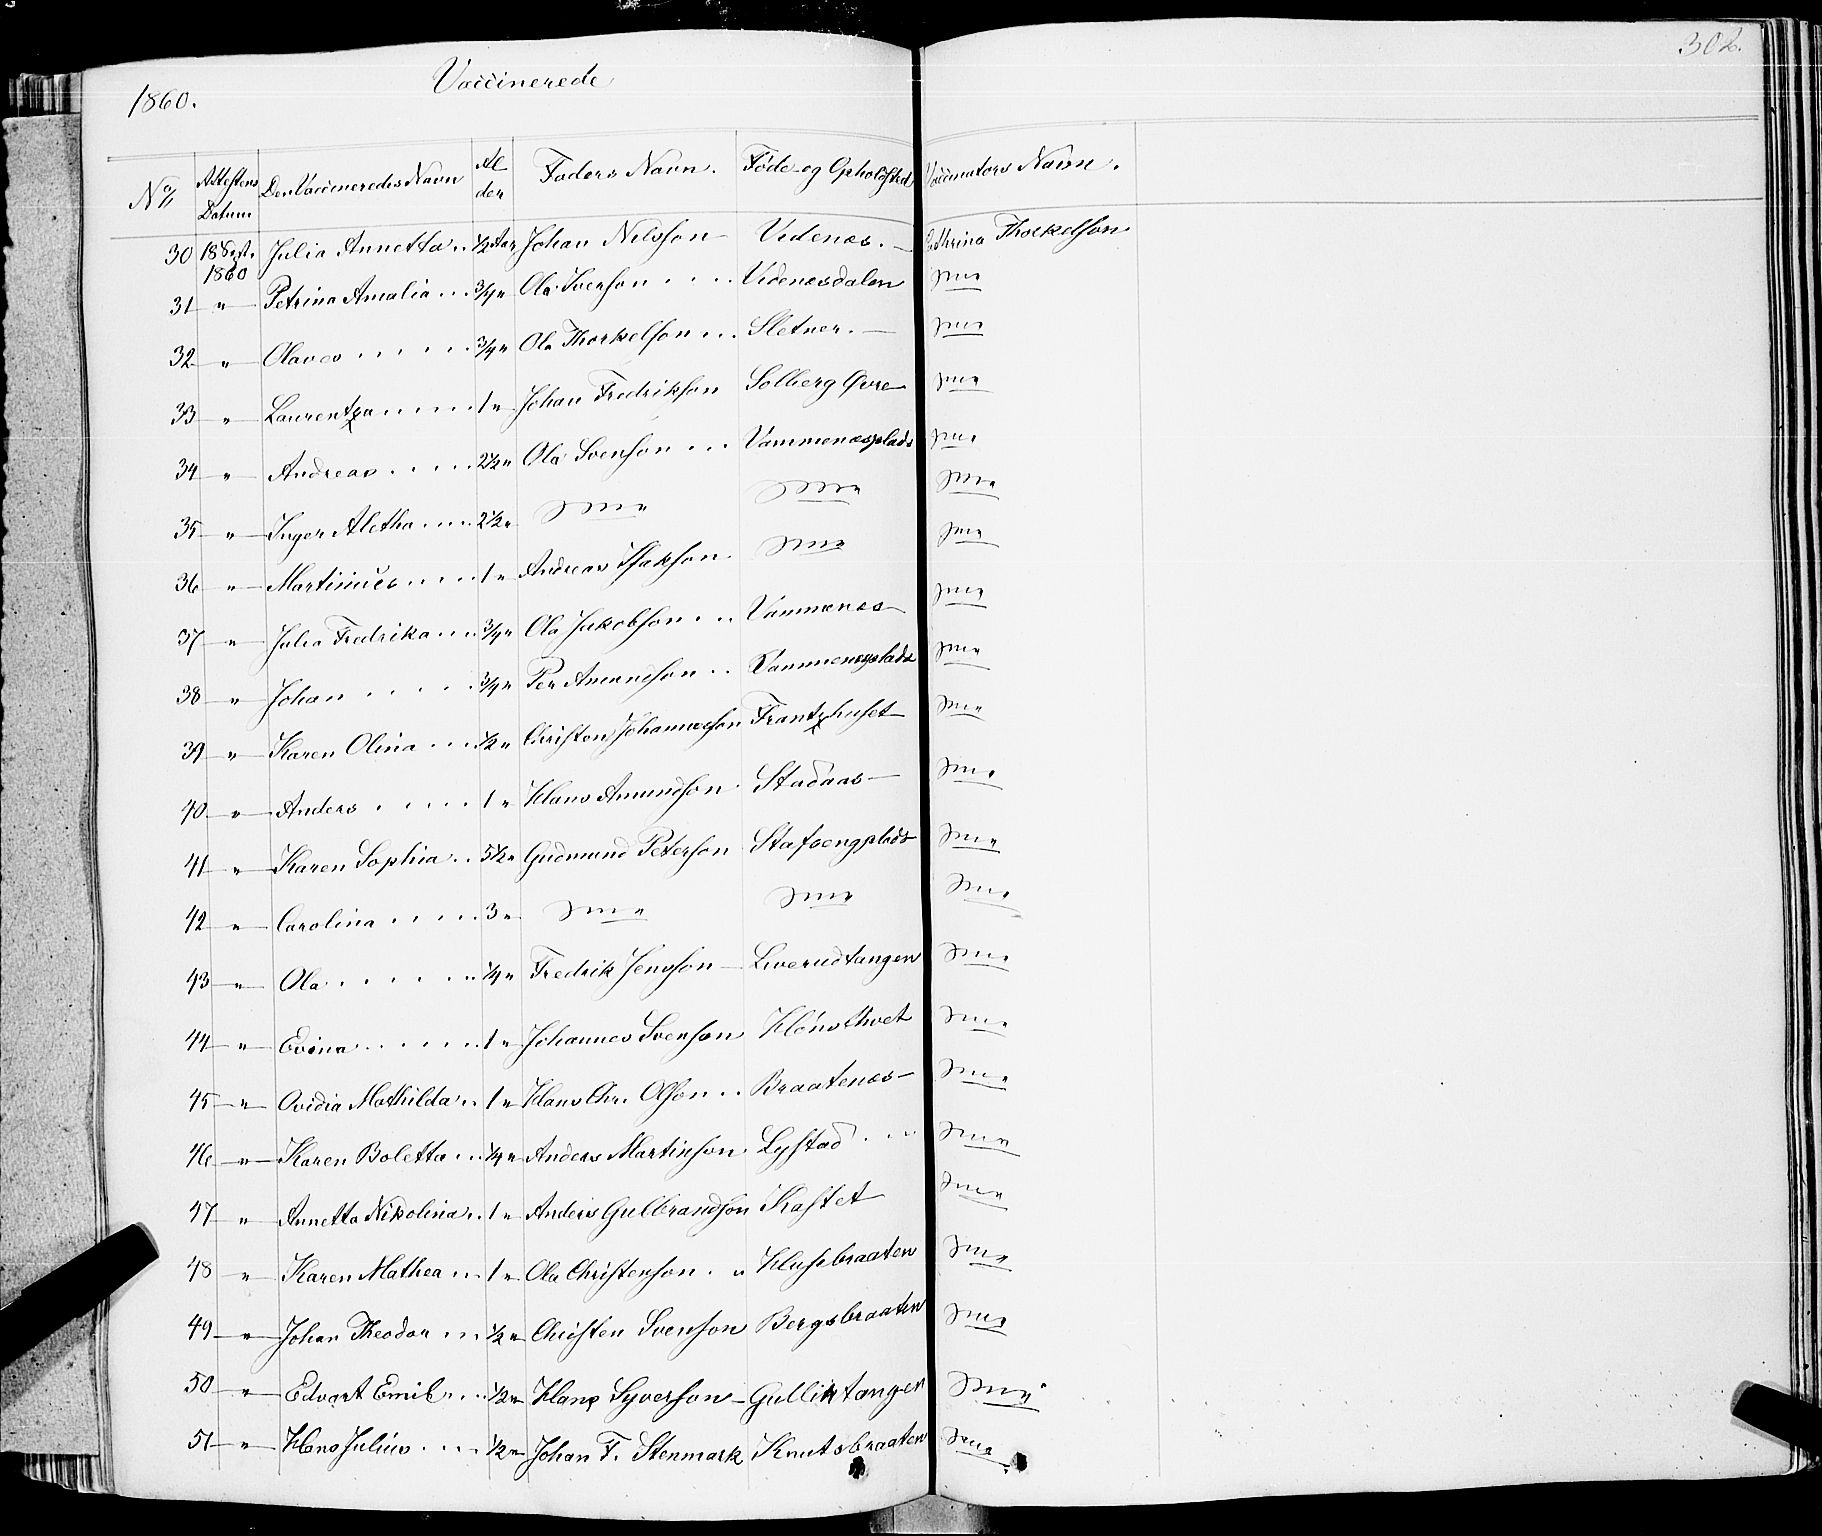 302.
1860. Vaccinerede
No/ Attestens Datum Den Vaccineredes Navn Al der Faders Navn. Føde og Opholdsted Vaccinators Navn.
30 18 Sept. 1860 Julia Annetta .. 1/2 Aar Johan Nilsson Vidnæs. Cathrina Thorkelson
31 " Petrina Amalia ... 3/4 " Ola Svenson .... Vidnæsdalen Sme
32 " Olaves ...... 3/4 " Ola Thorkelson ... Sletner. Sme
33 " Laurentza ..... 1 " Johan Fredrikson Solberg Øvre Sme
34 " Andreas ..... 2 1/2 " Ola Svenson ... Vammenæsplads Sme
35 " Inger Aletha .... 2 1/2 " Sme Sme Sme
36 " Martinius .... 1 " Andreas Isakson Sme Sme
37 " Julia Fredrika ... 3/4 " Ola Jakobson ... Vammenæs Sme
38 " Johan ..... 3/4 " Per Amundson .. Vammenæsplads Sme
39 " Karen Olina ... 1/2 " Christen Johanneson Frantzhuset Sme
40 " Anders ..... 1 " Hans Amundson Stadaas Sme
41 " Karen Sophia .. 5 1/2 " Gudmund Peterson Stafsengplads Sme
42 " Carolina ..... 3 " Sme Sme Sme
43 " Ola ...... 1/4 " Fredrik Jensson Liverudtangen Sme
44 " Evina ...... 1 " Johannes Svenson Klønsthvet Sme
45 " Ovidia Mathilda .. 1 " Hans Chr. Olson .. Braatenæs Sme
46 " Karen Boletta ... 1/4 " Anders Martinson Lystad ... Sme
47 " Annetta Nikolina .. 1 " Anders Gulbrandson Kastet Sme
48 " Karen Mathea ... 1 " Ola Christenson .. Husebraaten Sme
49 " Johan Theodor ... 1/2 " Christen Svenson Bergsbraaten Sme
50 " Edvart Emil ... 1/2 " Hans Syverson Gulliktangen Sme
51 " Hans Julius .... 1/2 " Johan F. Stenmark Knutsbraaten Sme